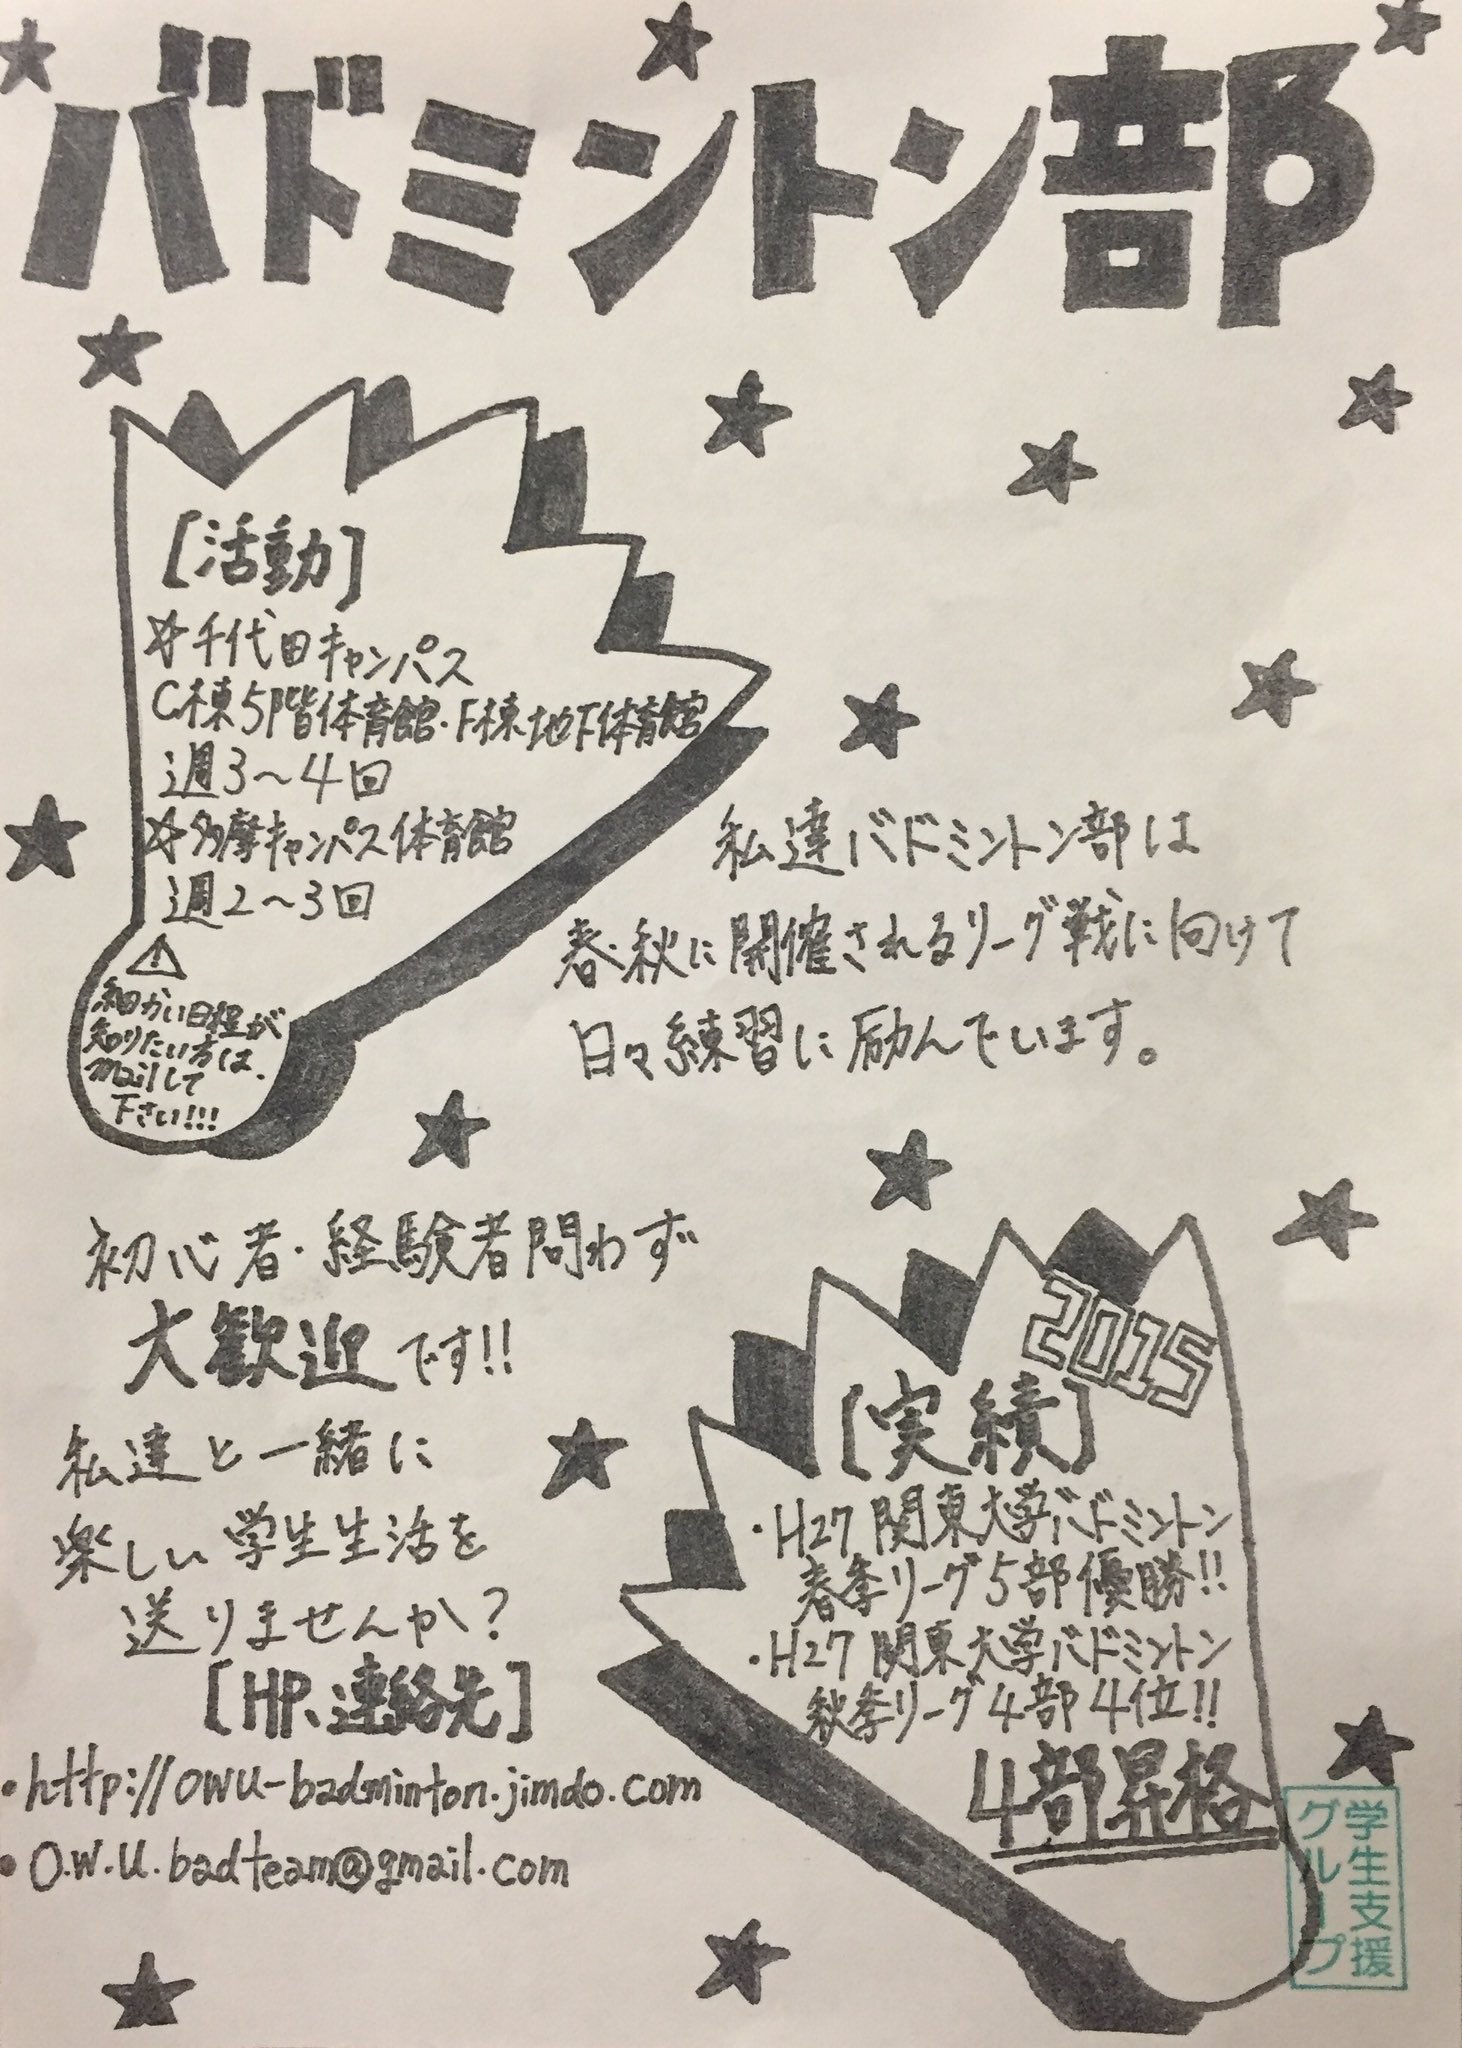 バドミントン部
[活動]
☆千代田キャンパス
C棟5階体育館・F棟地下体育館
週3〜4回
☆多摩キャンパス体育館
週2〜3回
⚠
細かい日程が
知りたい方は、
mailして
下さい!!!
私達バドミントン部は
春・秋に開催されるリーグ戦に向けて
日々練習に励んでいます。
初心者・経験者問わず
大歓迎です!!
私達と一緒に
楽しい学生生活を
送りませんか?
[HP、連絡先]
・http://owu-badminton.jimdo.com
・o.w.u.badteam@gmail.com
2015
[実績]
・H27 関東大学バドミントン
春季リーグ5部優勝!!
・H27 関東大学バドミントン
秋季リーグ4部4位!!
4部昇格
学生支援
グループ